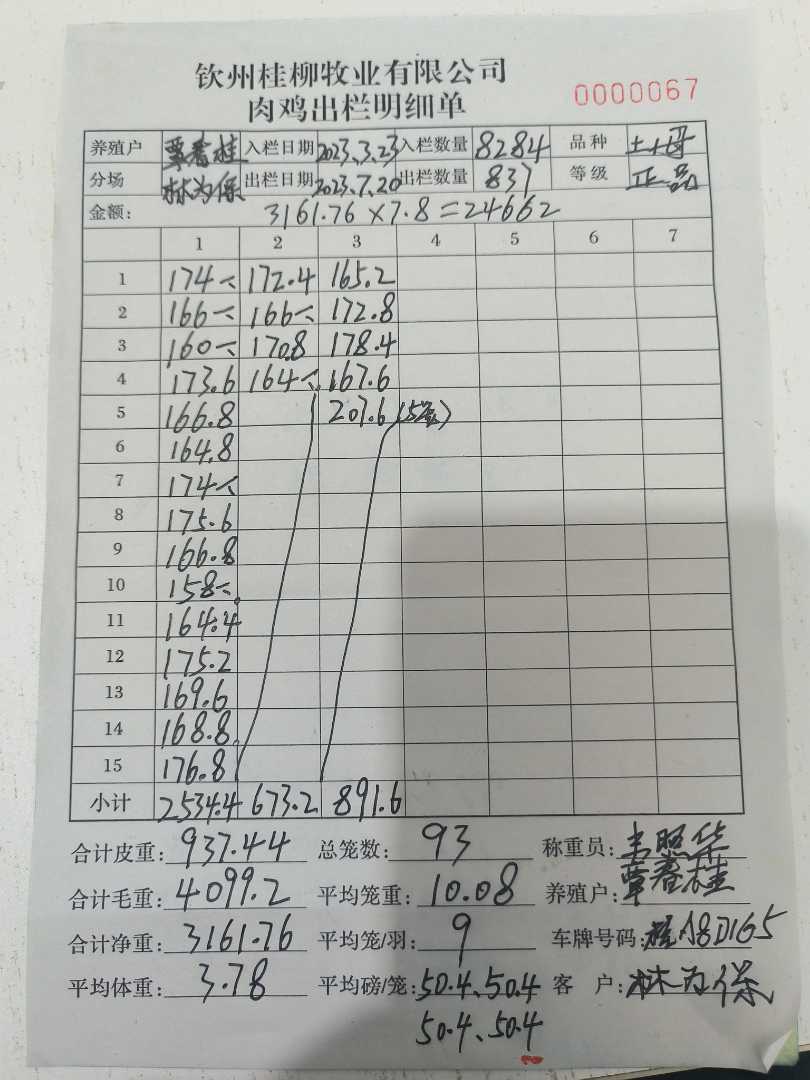 钦州桂柳牧业有限公司
肉鸡出栏明细单 0000067
养殖户 覃春桂 入栏日期 2023.3.23 入栏数量 8284 品种 土小母
分场 林为保 出栏日期 2023.7.20 出栏数量 837 等级 正品
金额: 3161.76×7.8=24662
1 2 3 4 5 6 7
1 174 172.4 165.2
2 166 166 172.8
3 160 170.8 178.4
4 173.6 164 167.6
5 166.8 207.6 (5笼)
6 164.8
7 174
8 175.6
9 166.8
10 158
11 164.4
12 175.2
13 169.6
14 168.8
15 176.8
小计 2534.4 673.2 891.6
合计皮重: 937.44 总笼数: 93 称重员: 韦照华
合计毛重: 4099.2 平均笼重: 10.08 养殖户: 覃春桂
合计净重: 3161.76 平均笼/羽: 9 车牌号码:
平均体重: 3.78 平均磅/笼: 50.4、50.4 客 户: 林为保
50.4、50.4